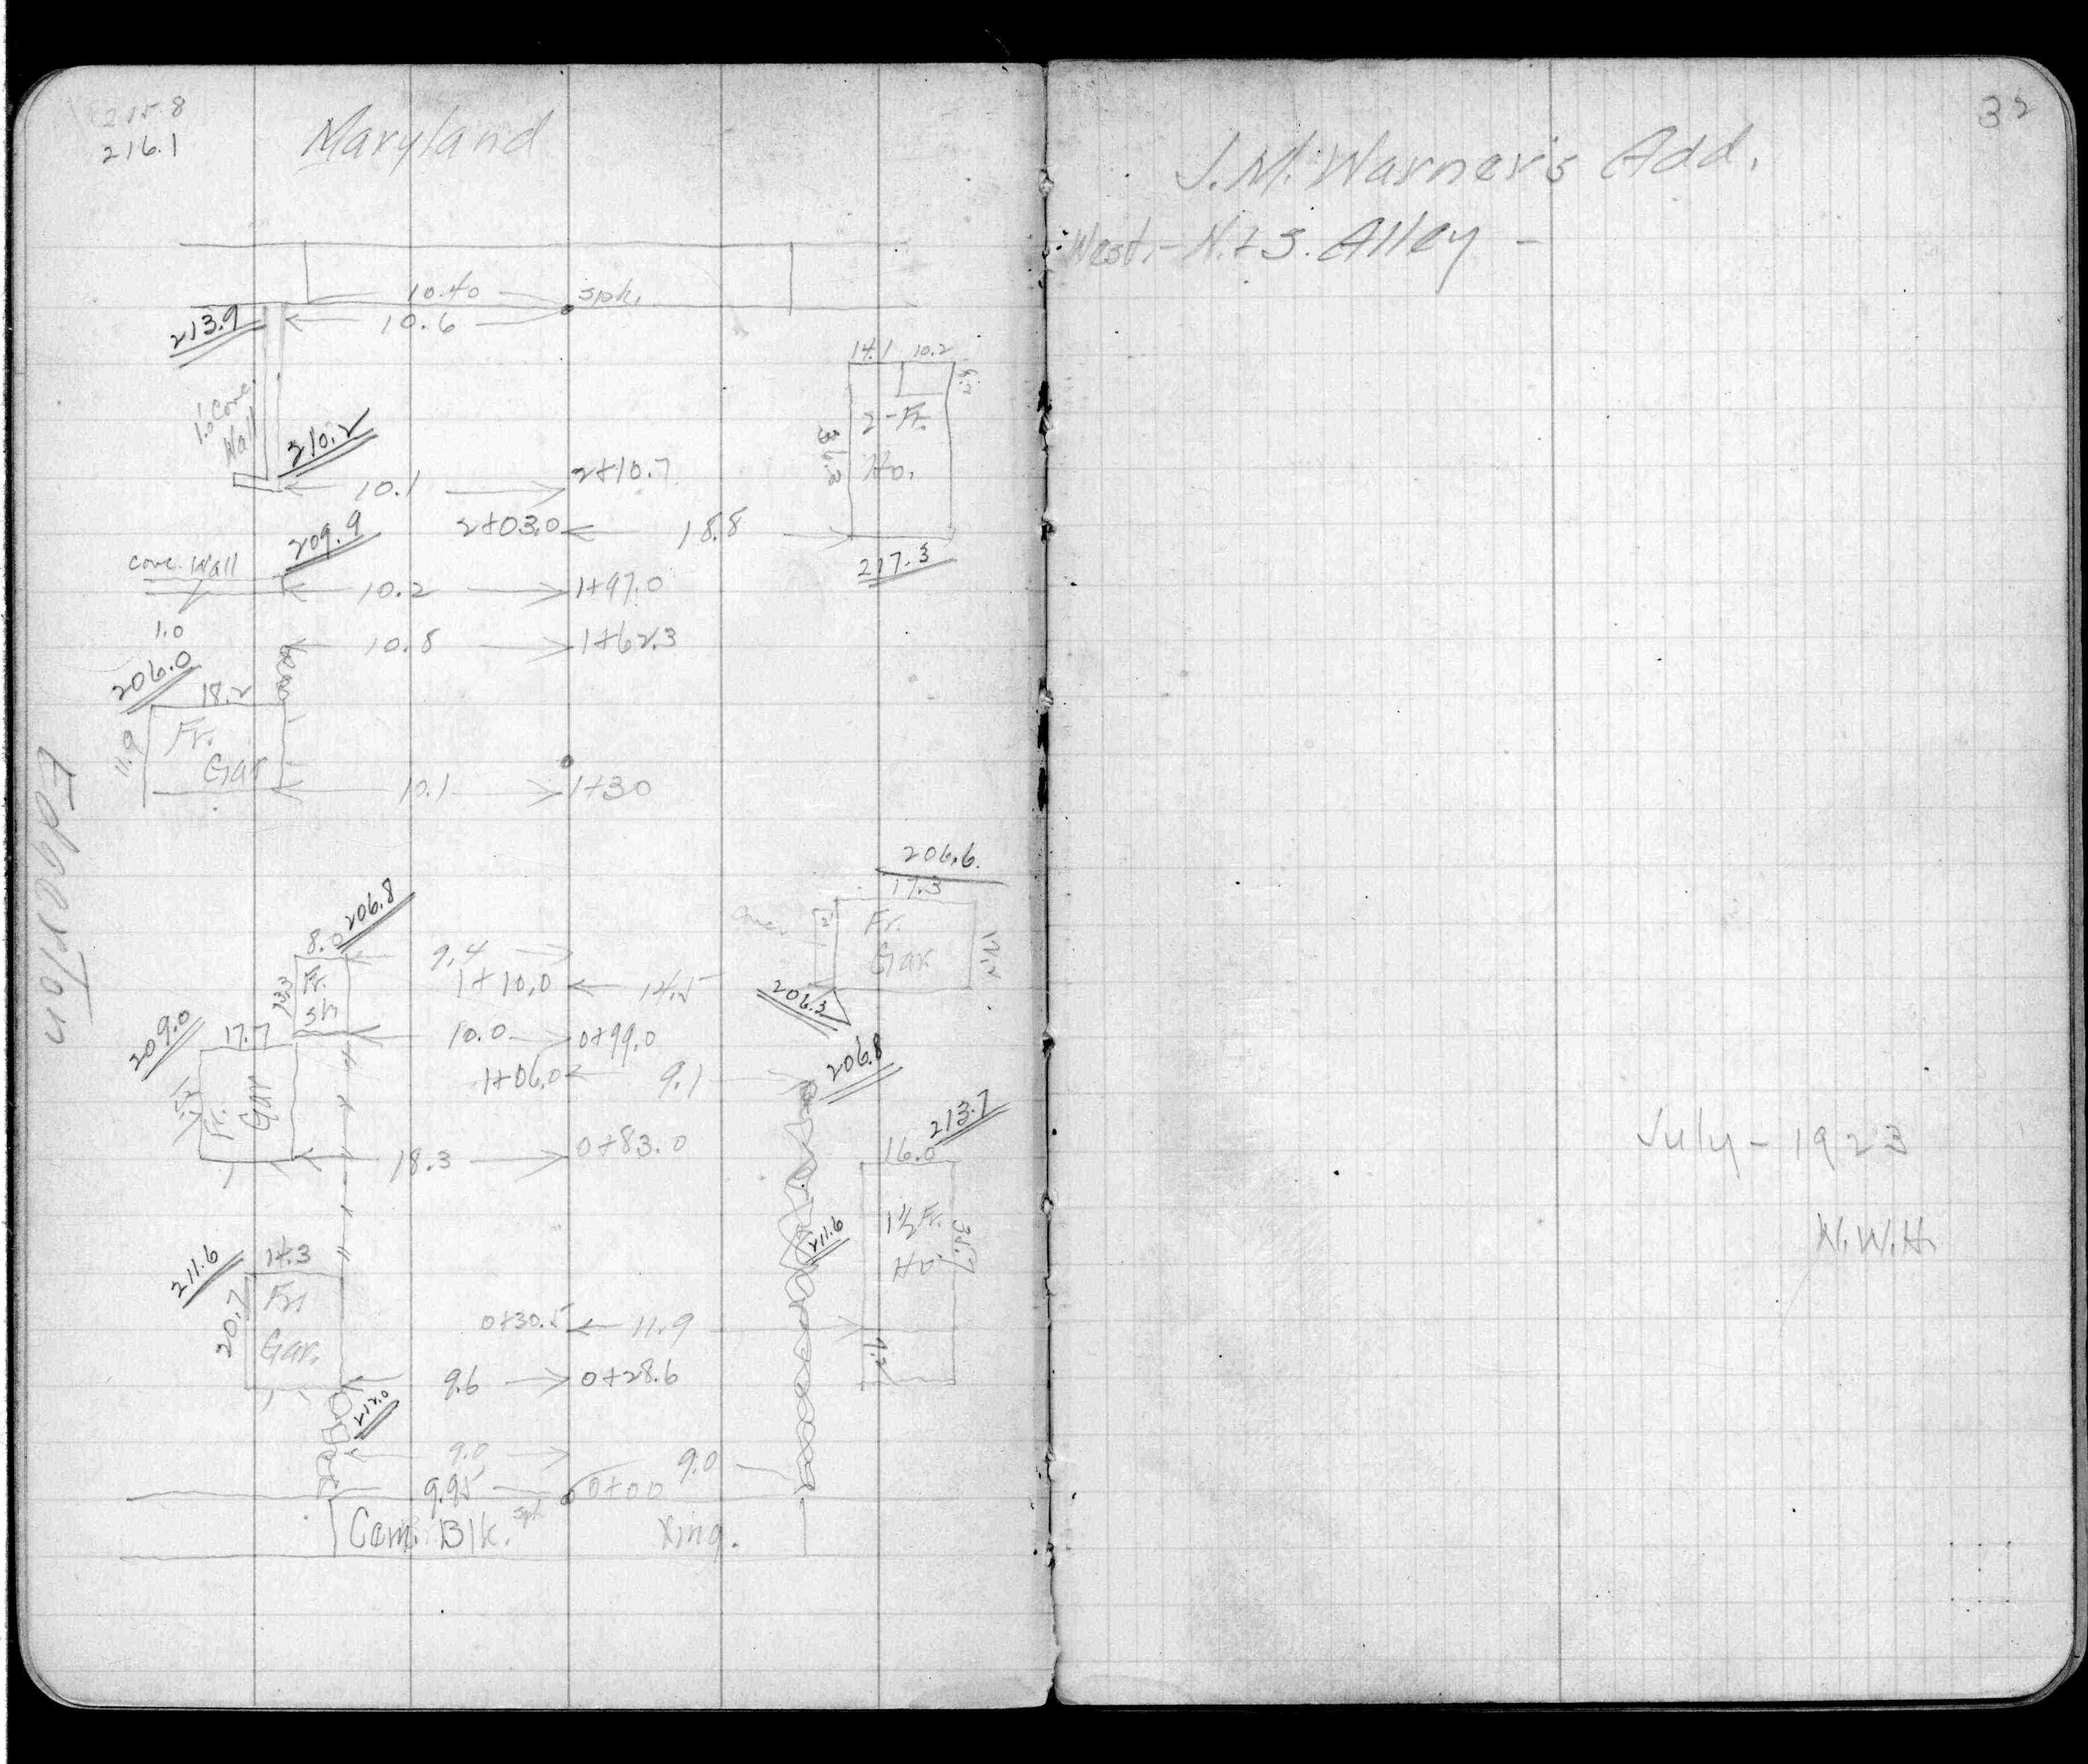 215.8
216.1
Maryland
10.40
spk.
213.9
10.6
14.1 10.2
1.0' Conc.
Wall
2-Fr.
Ho.
36.3
210.2
2+10.7
10.1
2+03.0
18.8
209.9
217.3
Conc. Wall
10.2
1+97.0
1.0
10.8
1+62.3
206.0
18.2
Fr.
Gar
11.9
10.1
1+30
Edgerton
206.6
17.3
206.8
8.0
Fr.
Gar
2'
9.4
Fr.
Sh
13.3
1+10.0
206.3
209.0
17.7
10.0
0+99.0
1+06.0
9.1
206.8
Fr.
Gar
213.7
18.3
0+83.0
16.0
1½ Fr.
Ho
35.7
211.6
211.6
14.3
Fr.
Gar.
20.7
0+30.5
11.9
9.6
0+28.6
212.0
9.0
9.0
9.95
0+00
spk
Cem. Blk.
Xing.
32
J.M. Warner's Add.
West - N.+S. Alley -
July - 1923
N.W.H.